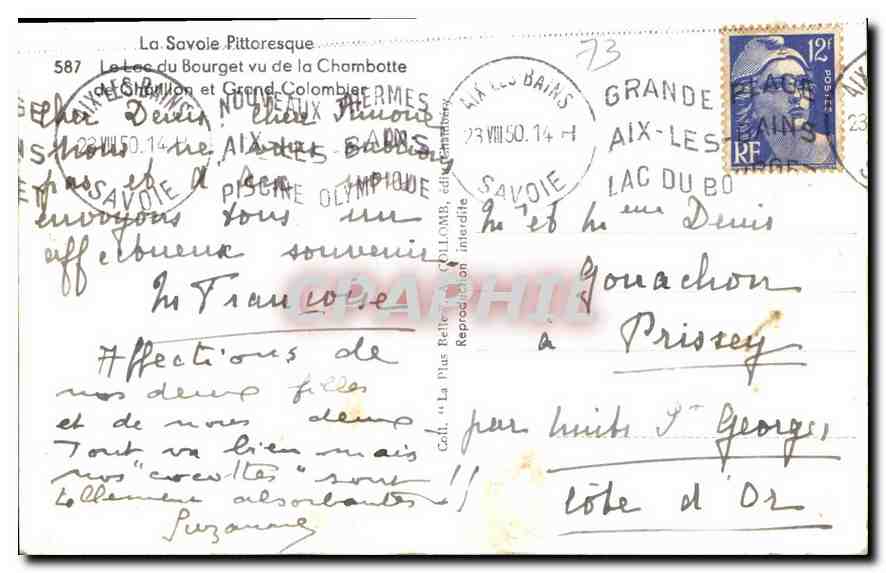 La Savoie Pittoresque
587 Le Lac du Bourget vu de la Chambotte
de Chatillon et Grand Colombier
Cher Denis, chère Simone
Nous ne vous oublions
pas et d'Aix nous
envoyons tous un
affectueux souvenir
M Françoise
Affections de
nos deux filles
et de nous deux
Tout va bien mais
nos "cocottes" sont
tellement absorbantes !!
Suzanne
AIX-LES-BAINS
23 VIII 50. 14 H
SAVOIE
NOUVEAUX THERMES
AIX-LES-BAINS
PISCINE OLYMPIQUE
Coll. "La Plus Belle" COLLOMB, édit. Chambéry
Reproduction interdite
73
AIX-LES-BAINS
23 VIII 50. 14 H
SAVOIE
GRANDE PLAGE
AIX-LES-BAINS
LAC DU BOURGET
12F
POSTES
RF
Mr et Mme Denis
Gouachon
à Prissey
par Nuits St Georges
Côte d'Or
CPAPHIL